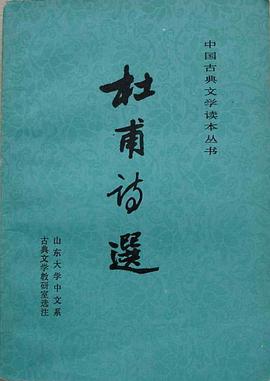 中国古典文学读本丛书
杜甫诗選
山东大学中文系
古典文学教研室选注